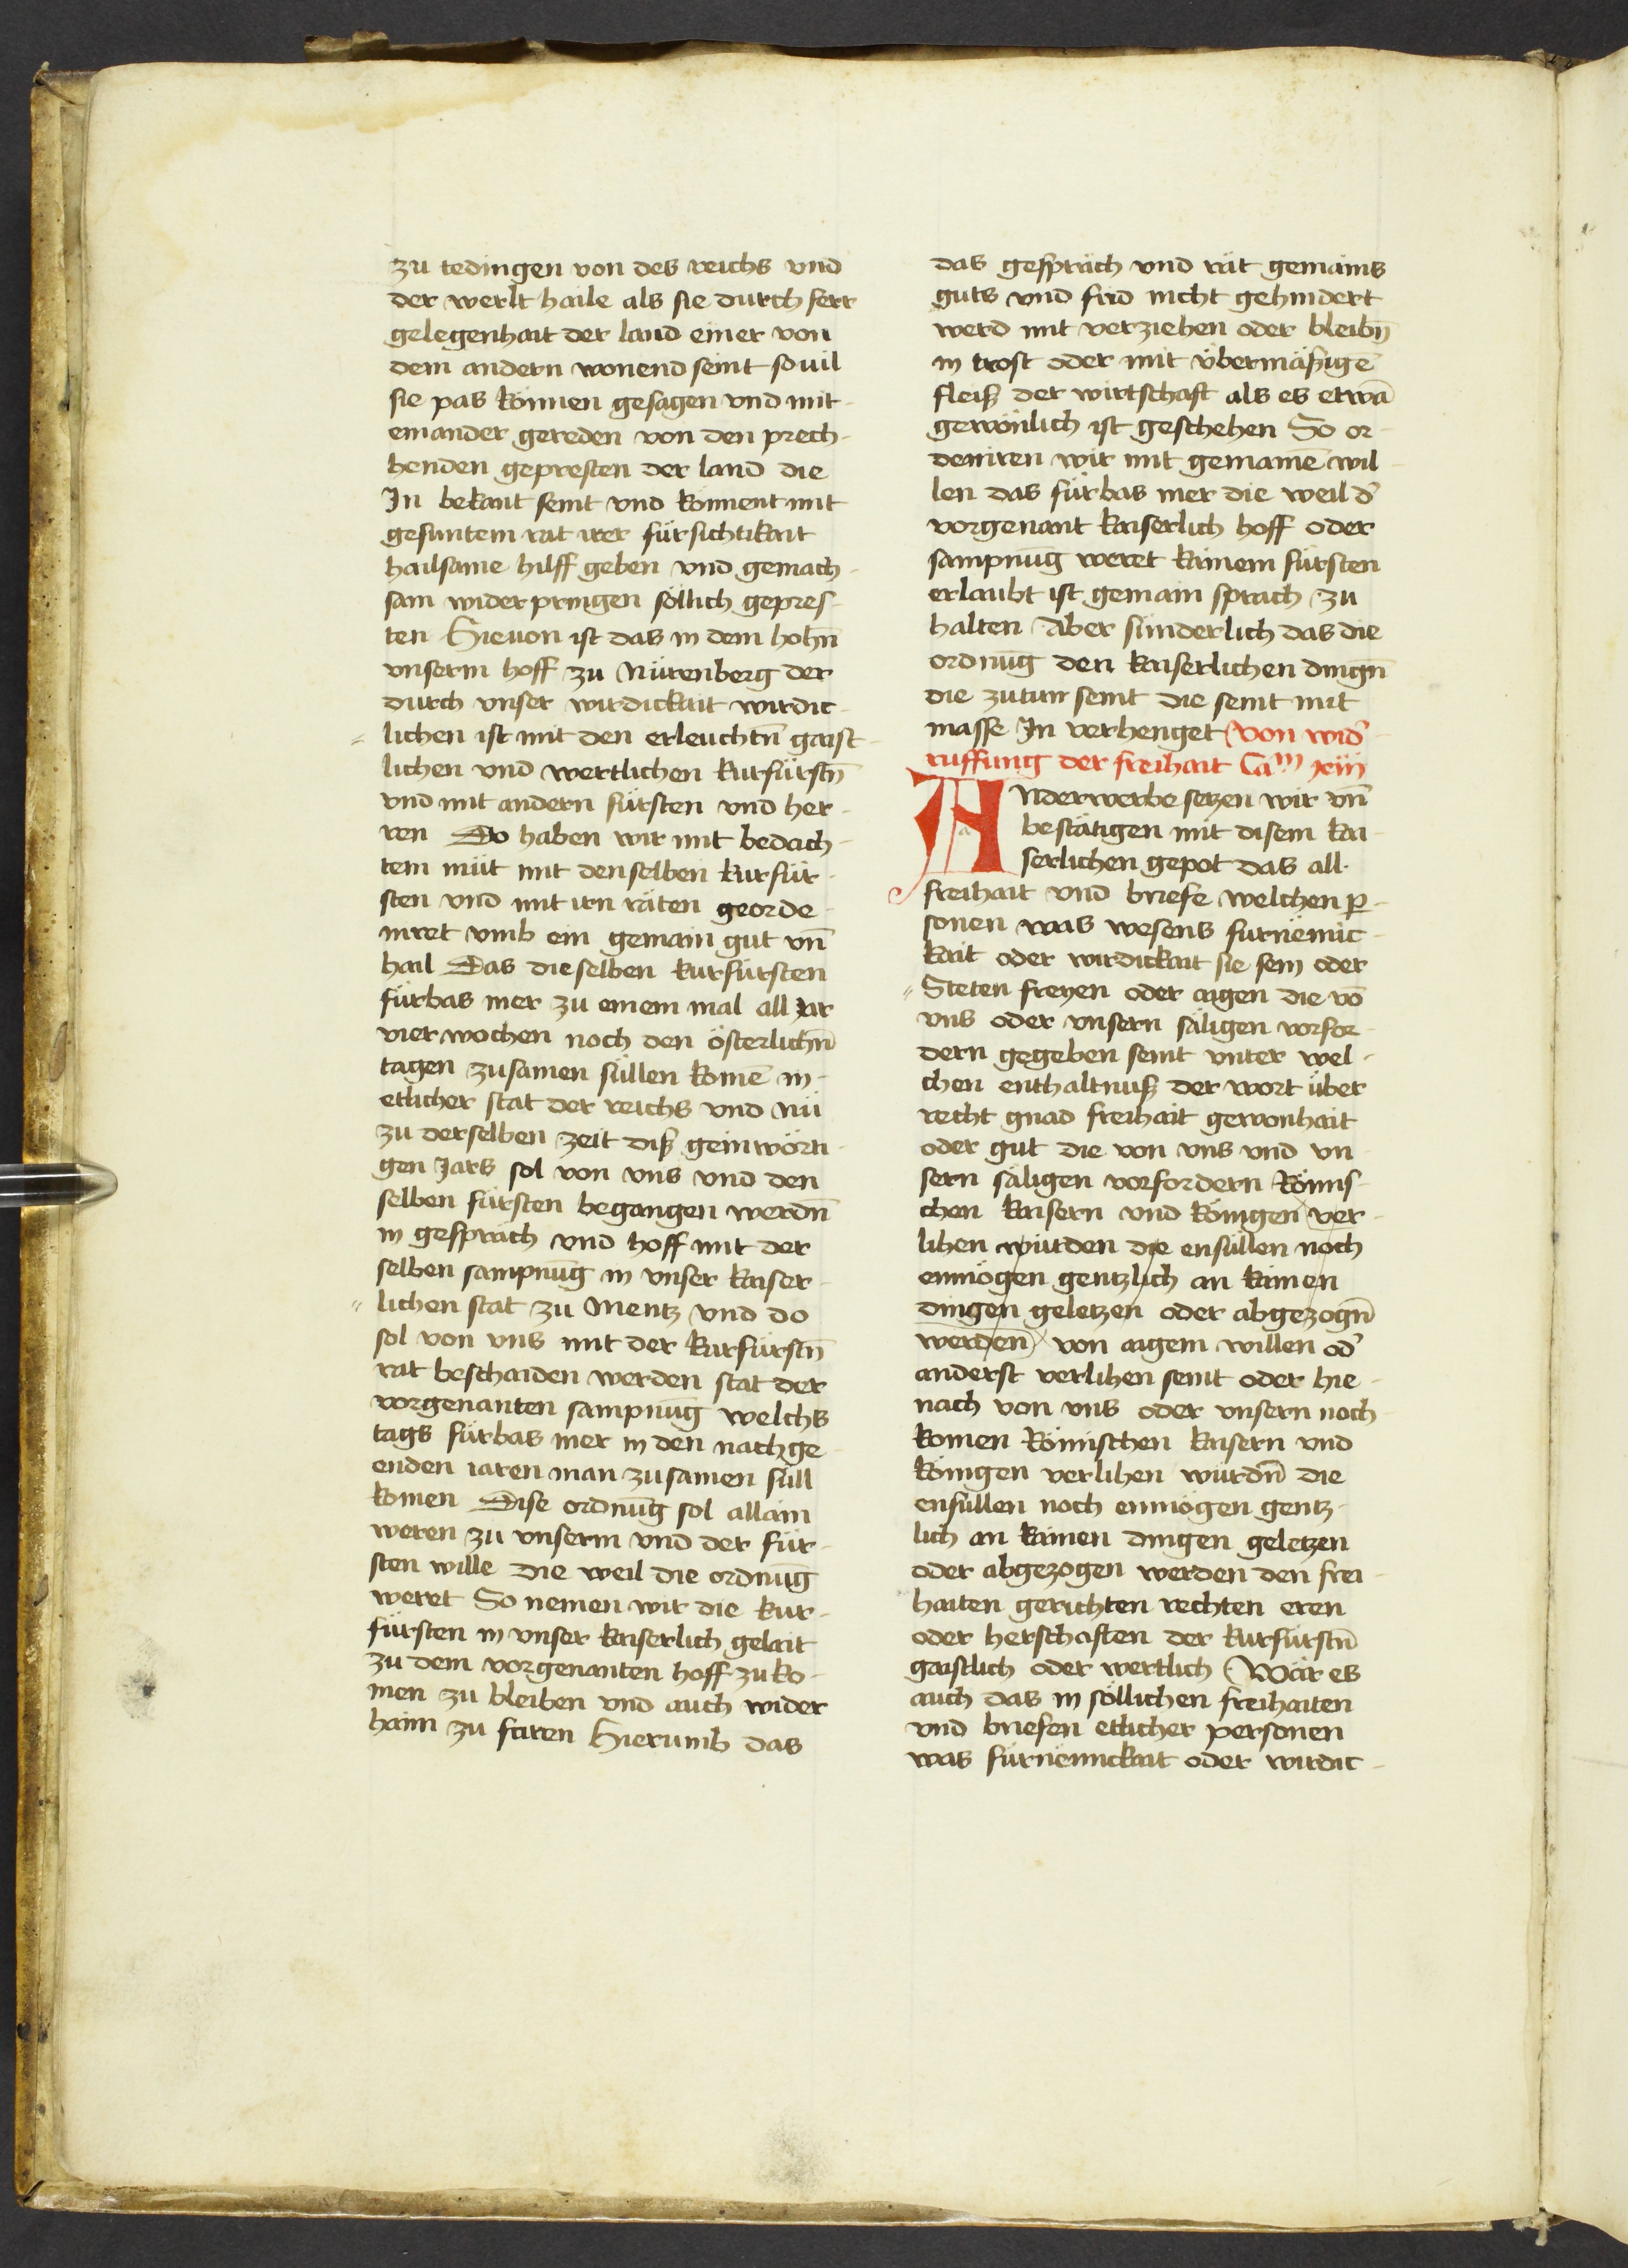 zu tedingen von des reichs vnd
der werlt haile als sie durch ferr
gelegenhait der land einer von
dem andern wonend seint souil
sie pas können gesagen vnd mit
einander gereden von den prech-
henden gepresten der land die
Jn bekant seint vnd könnent mit
gesuntem rat irer fürsichtikait
hailsame hilff geben vnd gemach-
sam widerpringen söllich gepres-
ten Hieuon ist das in dem hohn̄
vnserm hoff zu Nürenberg der
durch vnser wirdickait wirdic-
lichen ist mit den erleuchtn̄ gaist-
lichen vnd wertlichen kurfürstn̄
vnd mit andern fürsten vnd her-
ren Do haben wir mit bedach-
tem müt mit denselben kurfür-
sten vnd mit irn räten georde-
niret vmb ein gemain gut vn̄
hail Das dieselben kurfürsten
fürbas mer zu einem mal all Jar
vier wochen noch den österlichn̄
tagen zusamen süllen komē in-
etlicher stat der reichs vnd Nü
zu derselben zeit diß geinwörti-
gen Jars sol von vns vnd den
selben fürsten begangen werdn̄
in gespräch vnd hoff mit der
selben sampnūg in vnser kaiser-
lichen stat zu Mentz vnd do
sol von vns mit der kurfürstn̄
rat beschaiden werden stat der
vorgenanten sampnūg welchs
tags fürbas mer in den nachge
enden iaren man zusamen süll
komen Dise ordnūg sol allain
weren zu vnserm vnd der für-
sten wille die weil die ordnūg
weret So nemen wir die kur-
fürsten in vnser kaiserlich gelait
zu dem vorgenanten hoff zu ko-
men zu bleiben vnd auch wider
haim zu faren Hierumb das
das gespräch vnd rät gemains
guts vnd frid nicht gehindert
werd mit verziehen oder bleibn̄
in trost oder mit übermäßigē
fleiß der wirtschaft als es etwā
gewönlich ist geschehen So or-
deniren wir mit gemainē wil-
len das fürbas mer die weil d̄
vorgenant kaiserlich hoff oder
sampnūg weret kainem fürsten
erlaubt ist gemain sprach zu
halten Aber sünderlich das die
ordnūg den kaiserlichen dingn̄
die zutun seint die seint mit
masse Jn verhenget Von wid̄
ruffung der freihait Cam xiij
ANderwerbe setzen wir vn̄
bestätigen mit disem kai-
serlichen gepot das all
freihait vnd briefe welchen ꝑ-
sonen was wesens furnëmic-
kait oder wirdickait sie sein oder
Steten freyen oder aigen die vō
vns oder vnsern säligen vorfor-
dern gegeben seint vnter wel-
chen enthaltnuß der wort über
recht gnad freihait gewonhait
oder gut die von vns vnd vn-
sern säligen vorfordern Römis-
chen kaisern vnd königen ver-
lihen würden die ensüllen noch
enmögen gentzlich an kainen
dingen geletzen oder abgezogn̄
werden̄ von aigem willen od̄
anderst verlihen seint oder hie-
nach von vns oder vnsern noch
komen Römischen kaisern vnd
königen verlihen würdn̄ die
ensüllen noch enmögen gentz-
lich an kainen dingen geletzen
oder abgezogen werden den frei-
haiten gerichten rechten eren
oder herschaften der kurfürstn̄
gaistlich oder wertlich Wär es
auch das in söllichen freihaiten
vnd briefen etlicher personen
was fürnëmickait oder wirdic-